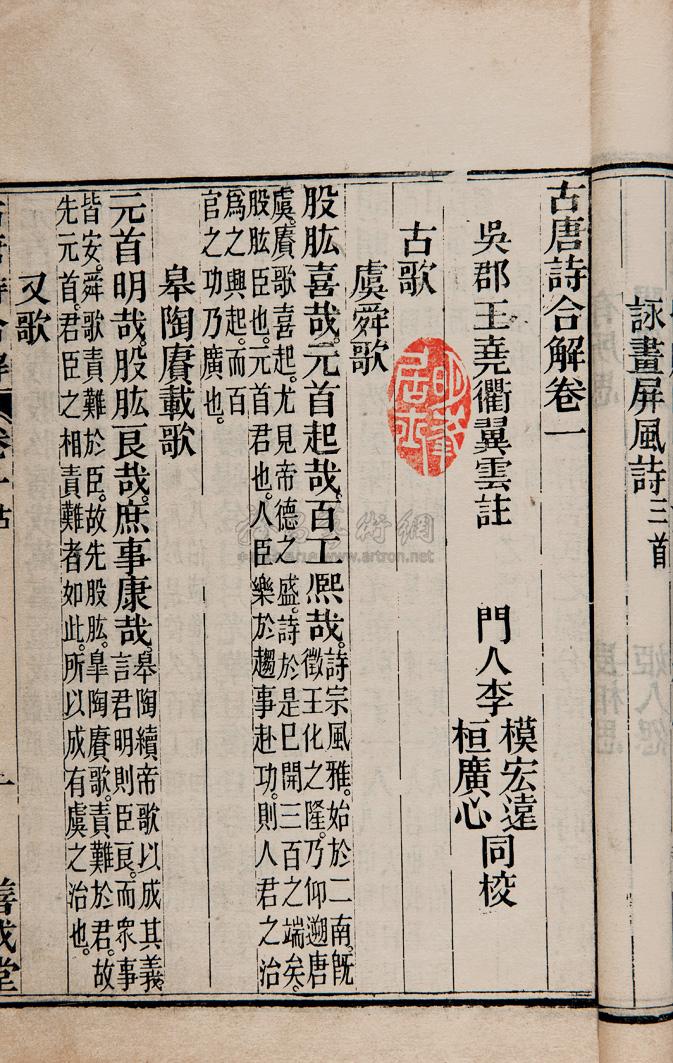 詠畫屏風詩三首
古唐詩合解卷一
吳郡王堯衢翼雲註 門人李模宏遠桓廣心同校
古歌
虞舜歌
股肱喜哉。元首起哉。百工熙哉。詩宗風雅。始於二南。旣徵王化之隆。乃仰遡唐
虞。賡歌喜起。尤見帝德之盛。詩於是已開三百之端矣。股肱臣也。元首君也。人臣樂於趨事赴功。則人君之治
爲之興起。而百官之功乃廣也。
皋陶賡載歌
元首明哉。股肱良哉。庶事康哉。皋陶續帝歌以成其義。言君明則臣良。而眾事
皆安。舜歌責難於臣。故先股肱。皐陶賡歌。責難於君。故先元首。君臣之相責難者如此。所以成有虞之治也。
又歌
古唐詩合解 卷一 古 一 善成堂
www.artron.net